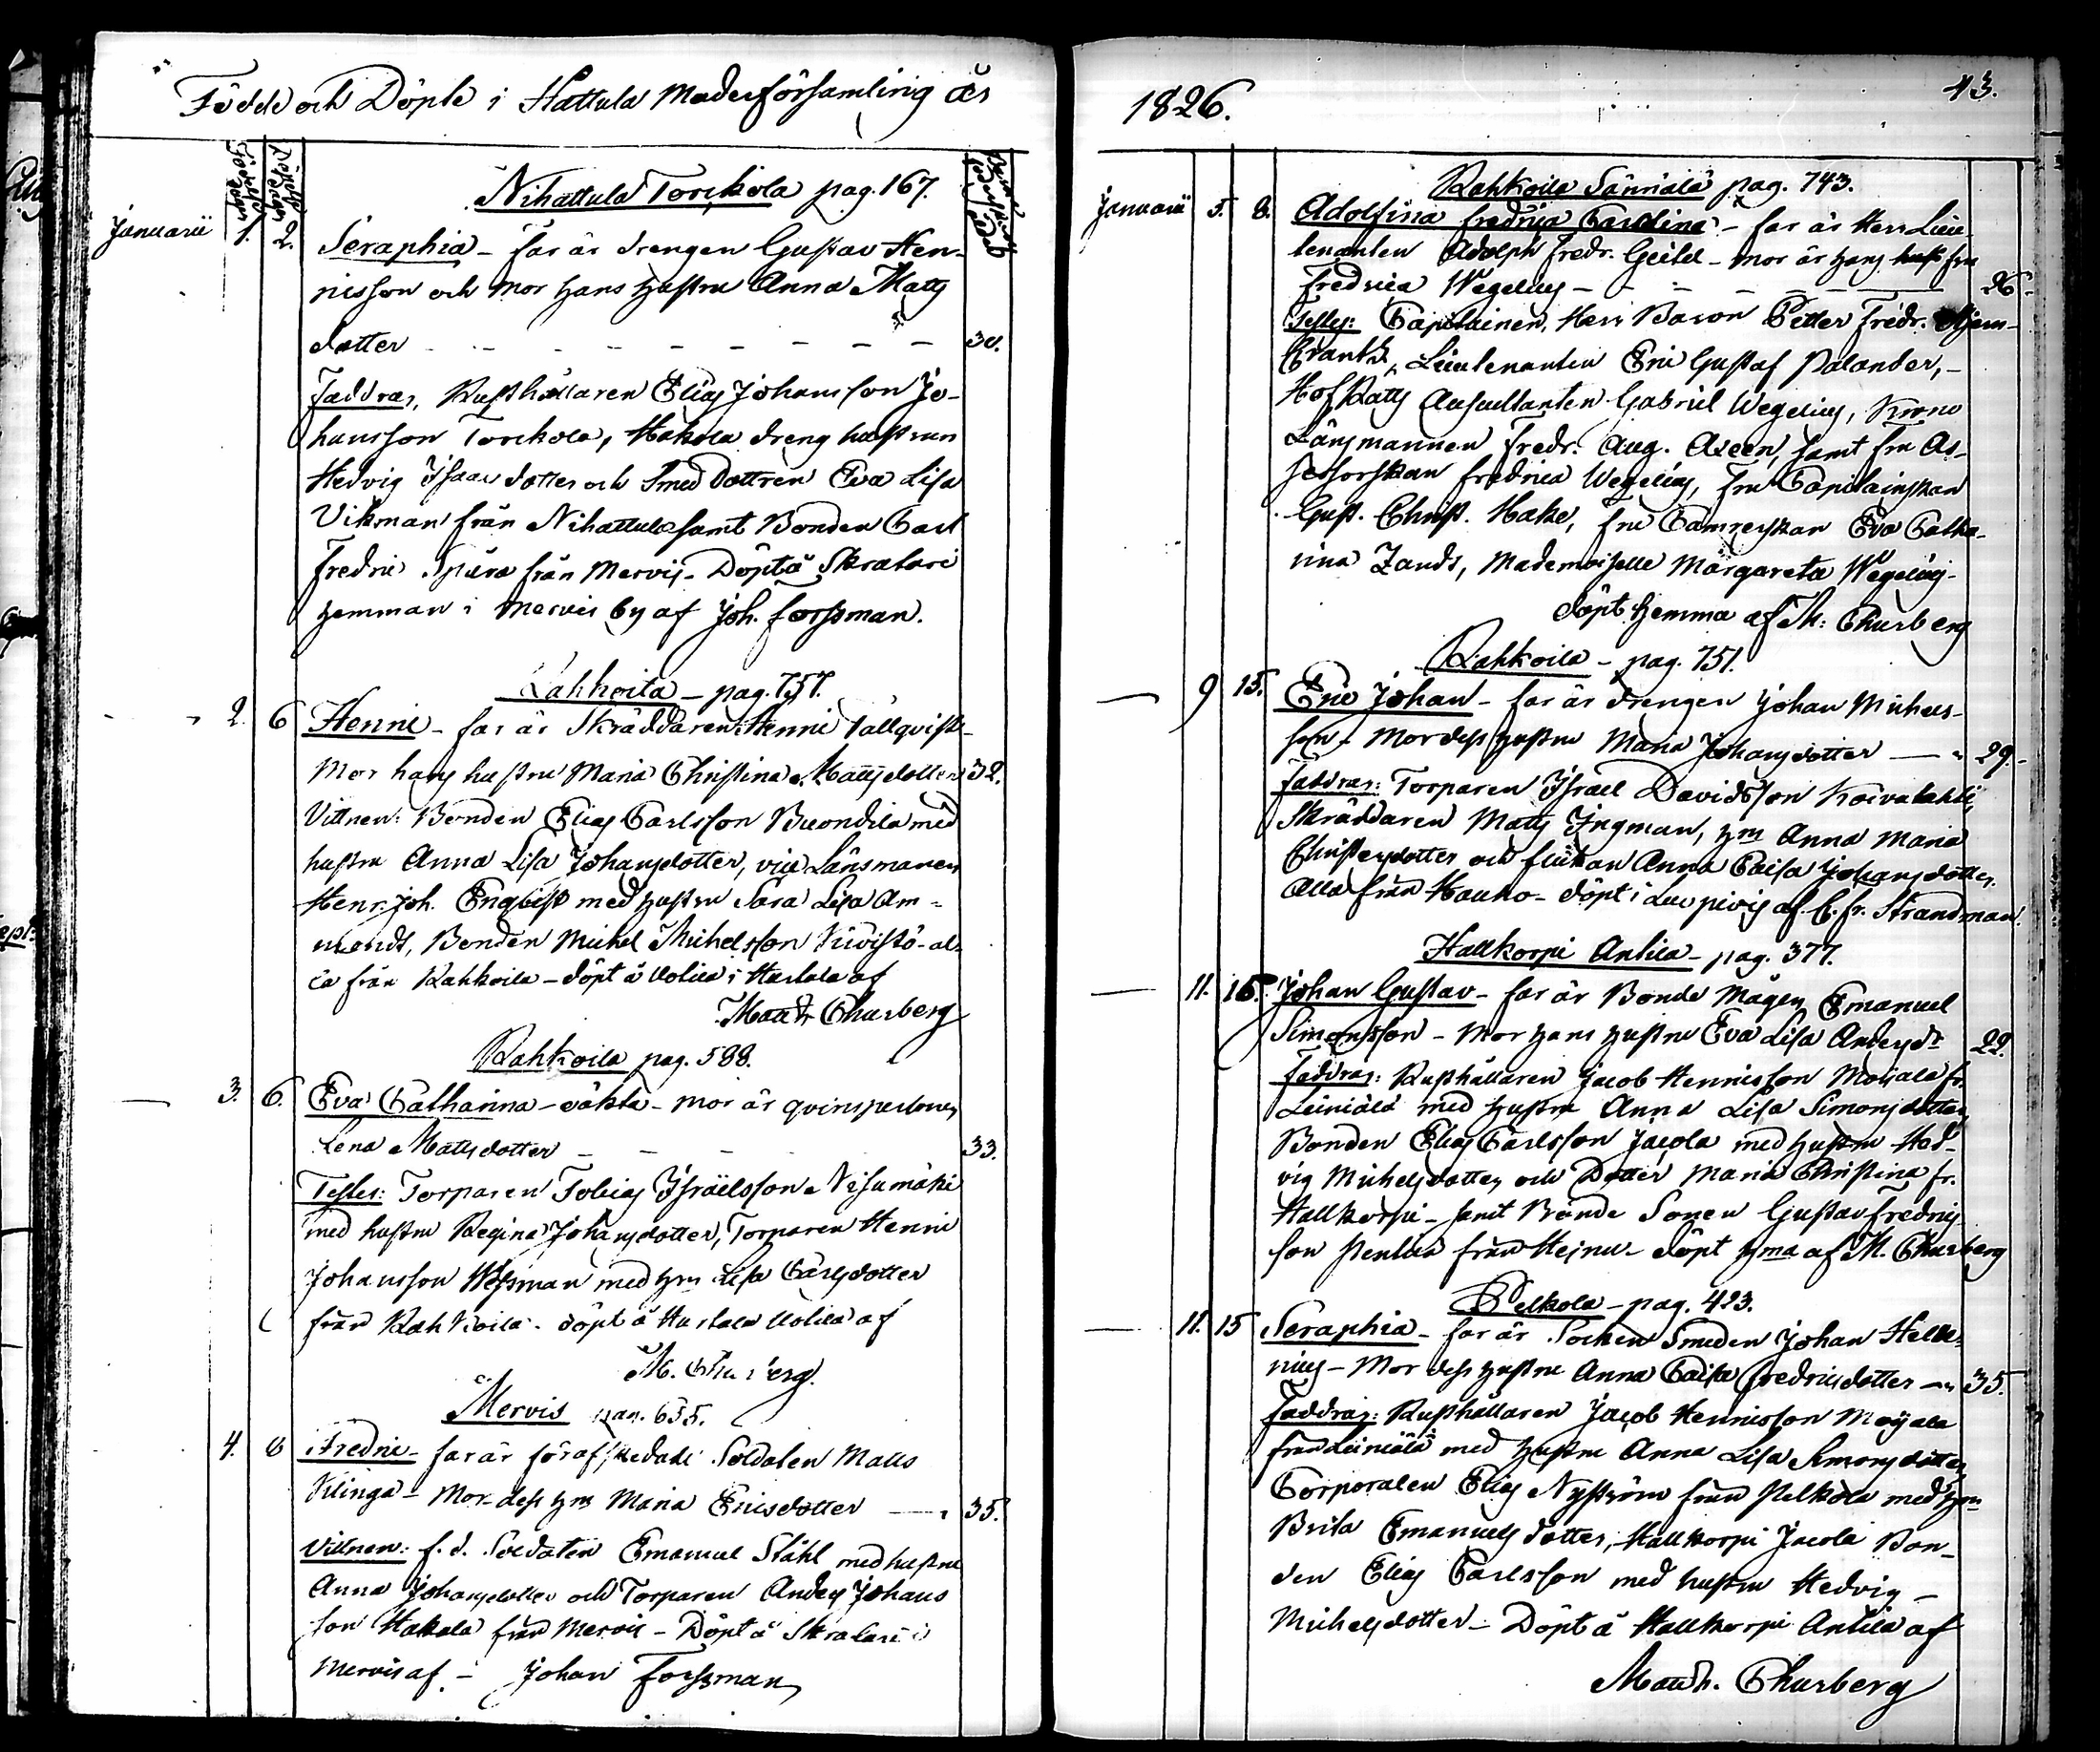 Födde och Döpte i Hattula Moderförsamling år
Födelse dagar
Döpelse dagar
Nihattula Torckola pag. 167.
Januarii 1. 2.
Seraphia - far är drengen Gustav Hen-
ricsson och mor hans hustru Anna Matts
dotter - - - - - - - - 30.
Faddrar, Rusthållaren Elias Johansson Jo-
hansson Torckola, Hakola dreng hustrun
Hedvig Isaacs dotter och Smed dottren Eva Lisa
Vikman från Nihattula samt Bonden Carl
Fredric från Mervis - Döpt å Skratari
hemman i Mervis by af Joh. Forssman.
Rahkoila - pag. 757.
2. 6 Henric - far är Skräddaren Henric Tallqvist -
Mor hans hustru Maria Christina Mattsdotter 32.
Vittnen: Bonden Elias Carlsson med
hustru Anna Lisa Johansdotter, vice Länsmannen
Henr. Joh. Enqvist med hustru Sara Lisa Am-
mondt, Bonden Michel Michelsson Kivistö - al-
la från Rahkoila - döpt å Uotila i Hurtala af
Matth. Churberg
Rahkoila pag. 588.
3. 6. Eva Catharina - oäkta - mor är qvinspersonen
Lena Mattsdotter - - - 33.
Testes: Torparen Tobias Israelsson Nisumäki
med hustru Regina Johansdotter, Torparen Henric
Johansson med hru Lisa Carlsdotter
från Rahkoila - döpt å Hurtala Uotila af
M. Churberg.
Mervis pag. 655.
4. 8 Fredric - far är för afskedade Soldaten Matts
Klinga - Mor dess hru Maria Ericsdotter 35.
Vittnen: f. d. Soldaten Emanuel Ståhl med hustru
Anna Johansdotter och Torparen Anders Johans
son Hakala från Mervis - Döpt å Skratari i
Mervis af - Johan Forssman
1826.
43.
Rahkoila Sänniälä pag. 743.
Januarii 5. 8. Adolfina Fredrica Carolina - far är Herr Lieu-
tenanten Adolph Fredr. Geitel - Mor är hans fru
Fredrica Wegelius - - - - - 26.
Testes: Capitainen, Herr Baron Petter Fredr. Stjern-
Crantz, Lieutenanten Eric Gustaf Palander, -
HofRätts Auscultanten Gabriel Wegelius, Krono
Länsmannen Fredr. Aug. Aseen, samt fru As-
sessorskan Fredrica Wegelius, fru Capitainskan
Gust. Christ. Hake, fru Camrerskan Eva Catha-
rina Zands, Mademoiselle Margareta Wegelius -
döpt hemma af M: Churberg
Rahkoila - pag. 751.
9 15. Eric Johan - far är drengen Johan Michels-
son - Mor dess hustru Maria Johansdotter — 29.
Faddrar: Torparen Israel Davidsson Koivulahti,
Skräddaren Matts Ingman, hru Anna Maria
Christersdotter och flickan Anna Caisa Johansdotter.
Alla från Hauho - döpt i af C. Fr. Strandman.
Hallkorpi Antila - pag. 377.
11. 15. Johan Gustav - far är Bonde Mågen Emanuel
Simonsson - Mor hans hustru Eva Lisa Andersdr 22.
Faddrar: Rusthållaren Jacob Henricsson Moijala fr.
Leiniälä med hustru Anna Lisa Simonsdotter,
Bonden Elias Carlsson Jacola med hustru Hed-
vig Michelsdotter och Dotter Maria Christina fr.
Hallkorpi - samt Bonde Sonen Gustav Fredrics
son Pentilä från Hejnu - döpt hma af M. Churberg
Pelkola - pag. 423.
11. 15 Seraphia - far är Socken Smeden Johan Helle-
nius - Mor dess hustru Anna Caisa Fredricsdotter - 35.
Faddrar: Rusthållaren Jacob Henricsson Moijala
från Leiniälä med hustru Anna Lisa Simonsdotter
Corporalen Elias Nyström från Pelkola med hru
Brita Emanuels dotter, Hallkorpi Jacola Bon-
den Elias Carlsson med hustru Hedvig -
Michelsdotter - Döpt å Hallkorpi Antila af
Matth. Churberg